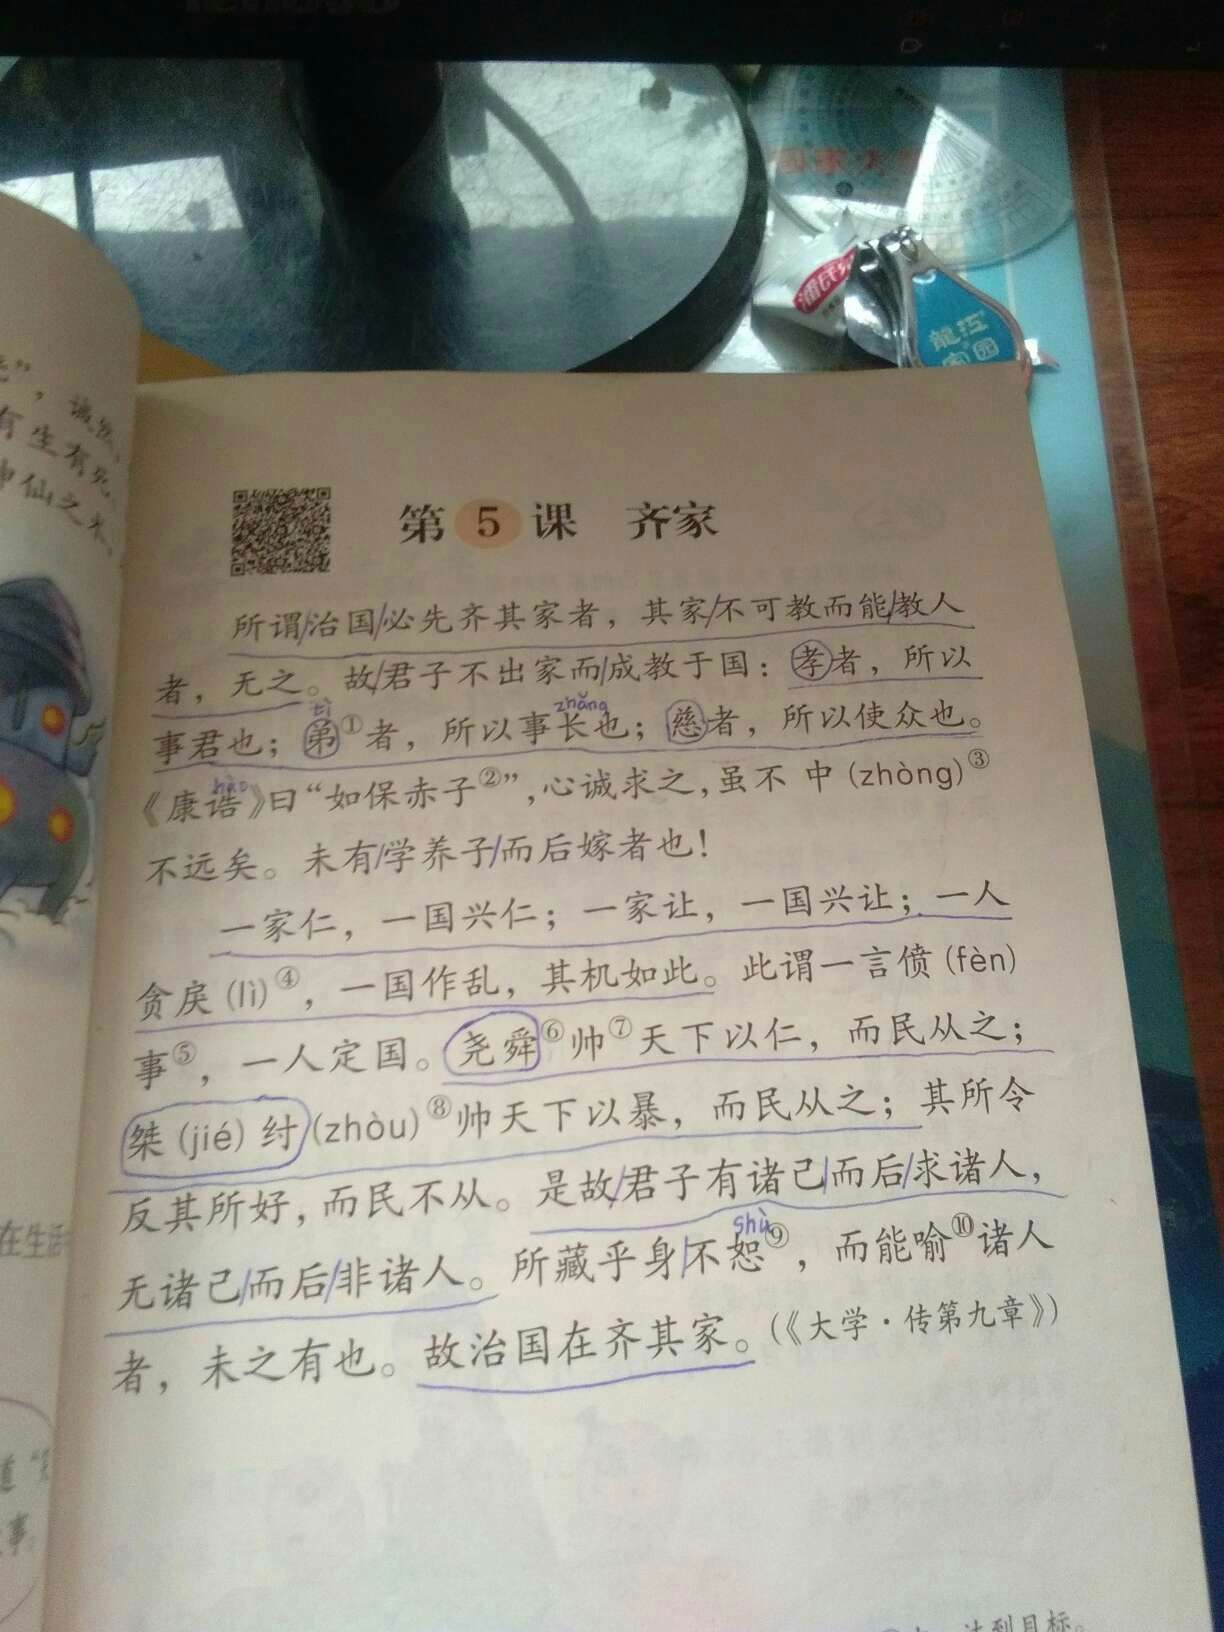 诚然，
有生有死。
神仙之术，
第5课 齐家
所谓/治国/必先齐其家者，其家/不可教而能/教人
者，无之。故/君子不出家而/成教于国：孝者，所以
tì
zhǎng
事君也；弟①者，所以事长也；慈者，所以使众也。
《康诰》曰“如保赤子②”，心诚求之，虽不中(zhòng)③
不远矣。未有/学养子/而后嫁者也！
一家仁，一国兴仁；一家让，一国兴让；一人
贪戾(lì)④，一国作乱，其机如此。此谓一言偾(fèn)
事⑤，一人定国。尧舜⑥帅⑦天下以仁，而民从之；
桀(jié)纣(zhòu)⑧帅天下以暴，而民从之；其所令
反其所好，而民不从。是故/君子有诸己/而后/求诸人，
shù
无诸己/而后/非诸人。所藏乎身/不恕⑨，而能喻⑩诸人
者，未之有也。故治国在齐其家。(《大学·传第九章》)
在生活
道
事。
达到目标。
龍江
家园